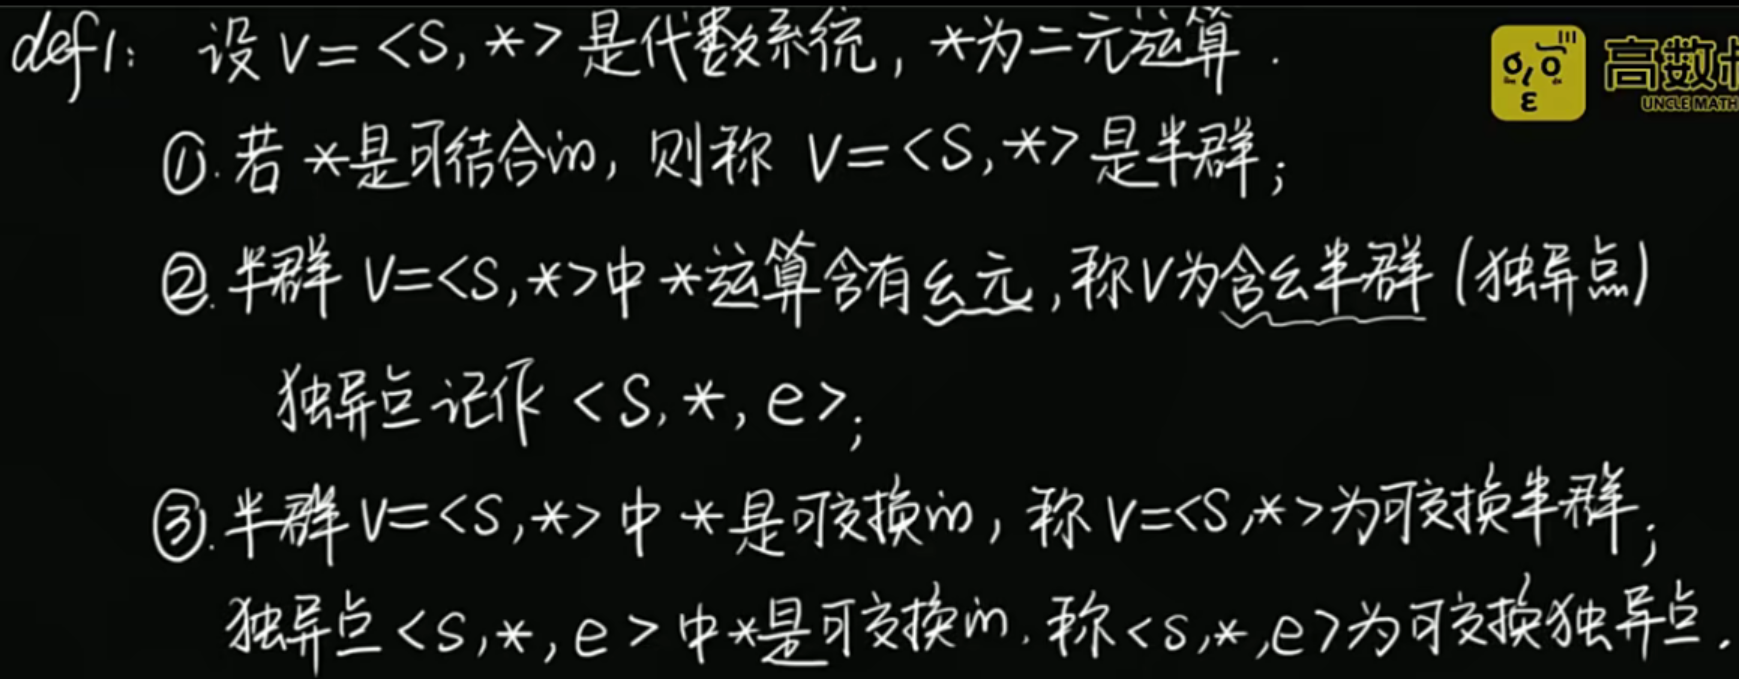 def1: 设 V=<S,*>是代数系统,*为二元运算.
高数
UNCLE MATH
①.若*是可结合的,则称 V=<S,*>是半群;
②.半群 V=<S,*>中*运算含有幺元,称V为含幺半群(独异点)
独异点记作<S,*,e>;
③.半群V=<S,*>中*是可交换的,称V=<S,*>为可交换半群;
独异点<S,*,e>中*是可交换的.称<S,*,e>为可交换独异点.